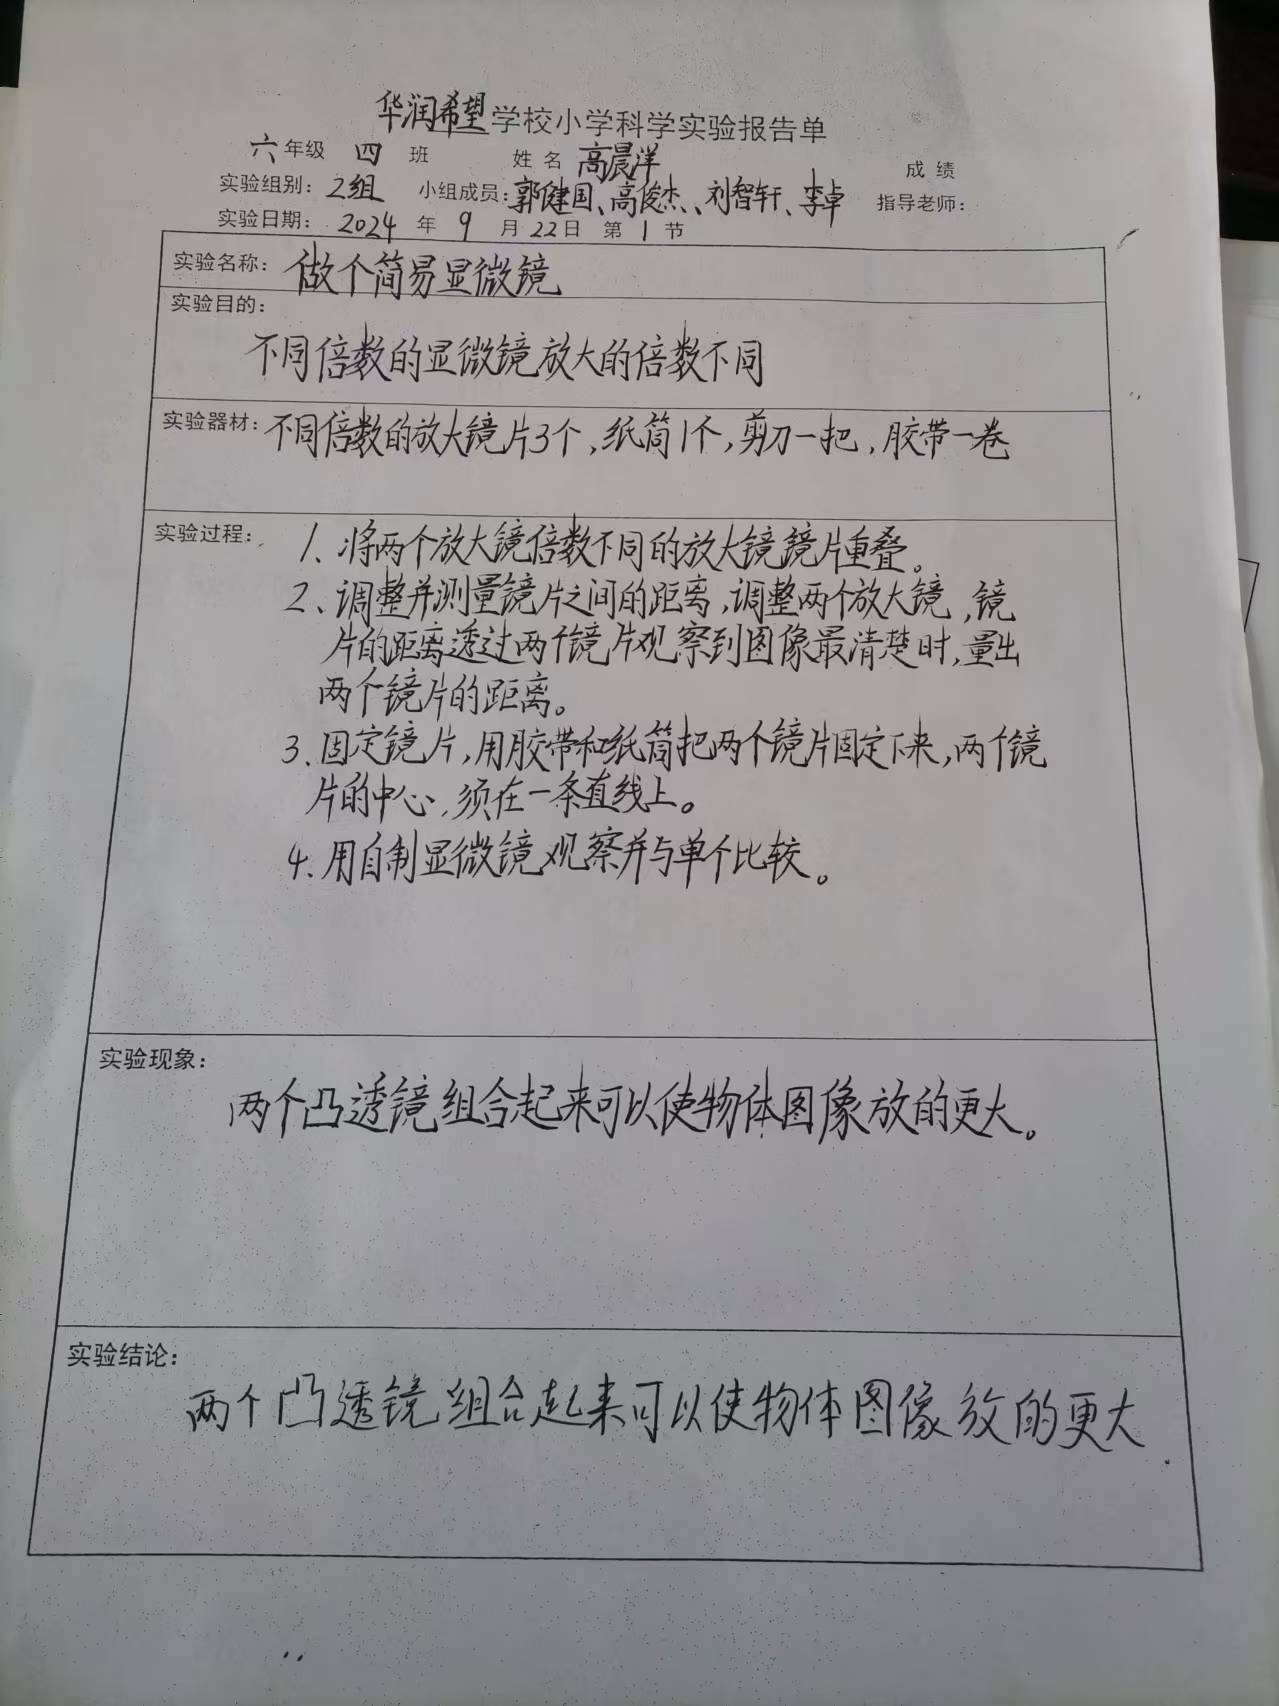 华润希望学校小学科学实验报告单
六年级 四 班 姓名 高晨洋 成绩
实验组别：2组 小组成员：郭健国、高俊杰、刘智轩、李卓 指导老师：
实验日期：2024 年 9 月 22日 第 1 节
实验名称：做个简易显微镜
实验目的：
不同倍数的显微镜放大的倍数不同
实验器材：不同倍数的放大镜片3个，纸筒1个，剪刀一把，胶带一卷
实验过程： 1、将两个放大镜倍数不同的放大镜镜片重叠。
2、调整并测量镜片之间的距离，调整两个放大镜，镜
片的距离透过两个镜片观察到图像最清楚时，量出
两个镜片的距离。
3、固定镜片，用胶带和纸筒把两个镜片固定下来，两个镜
片的中心，须在一条直线上。
4、用自制显微镜观察并与单个比较。
实验现象：
两个凸透镜组合起来可以使物体图像放的更大。
实验结论：
两个凸透镜组合起来可以使物体图像放的更大.